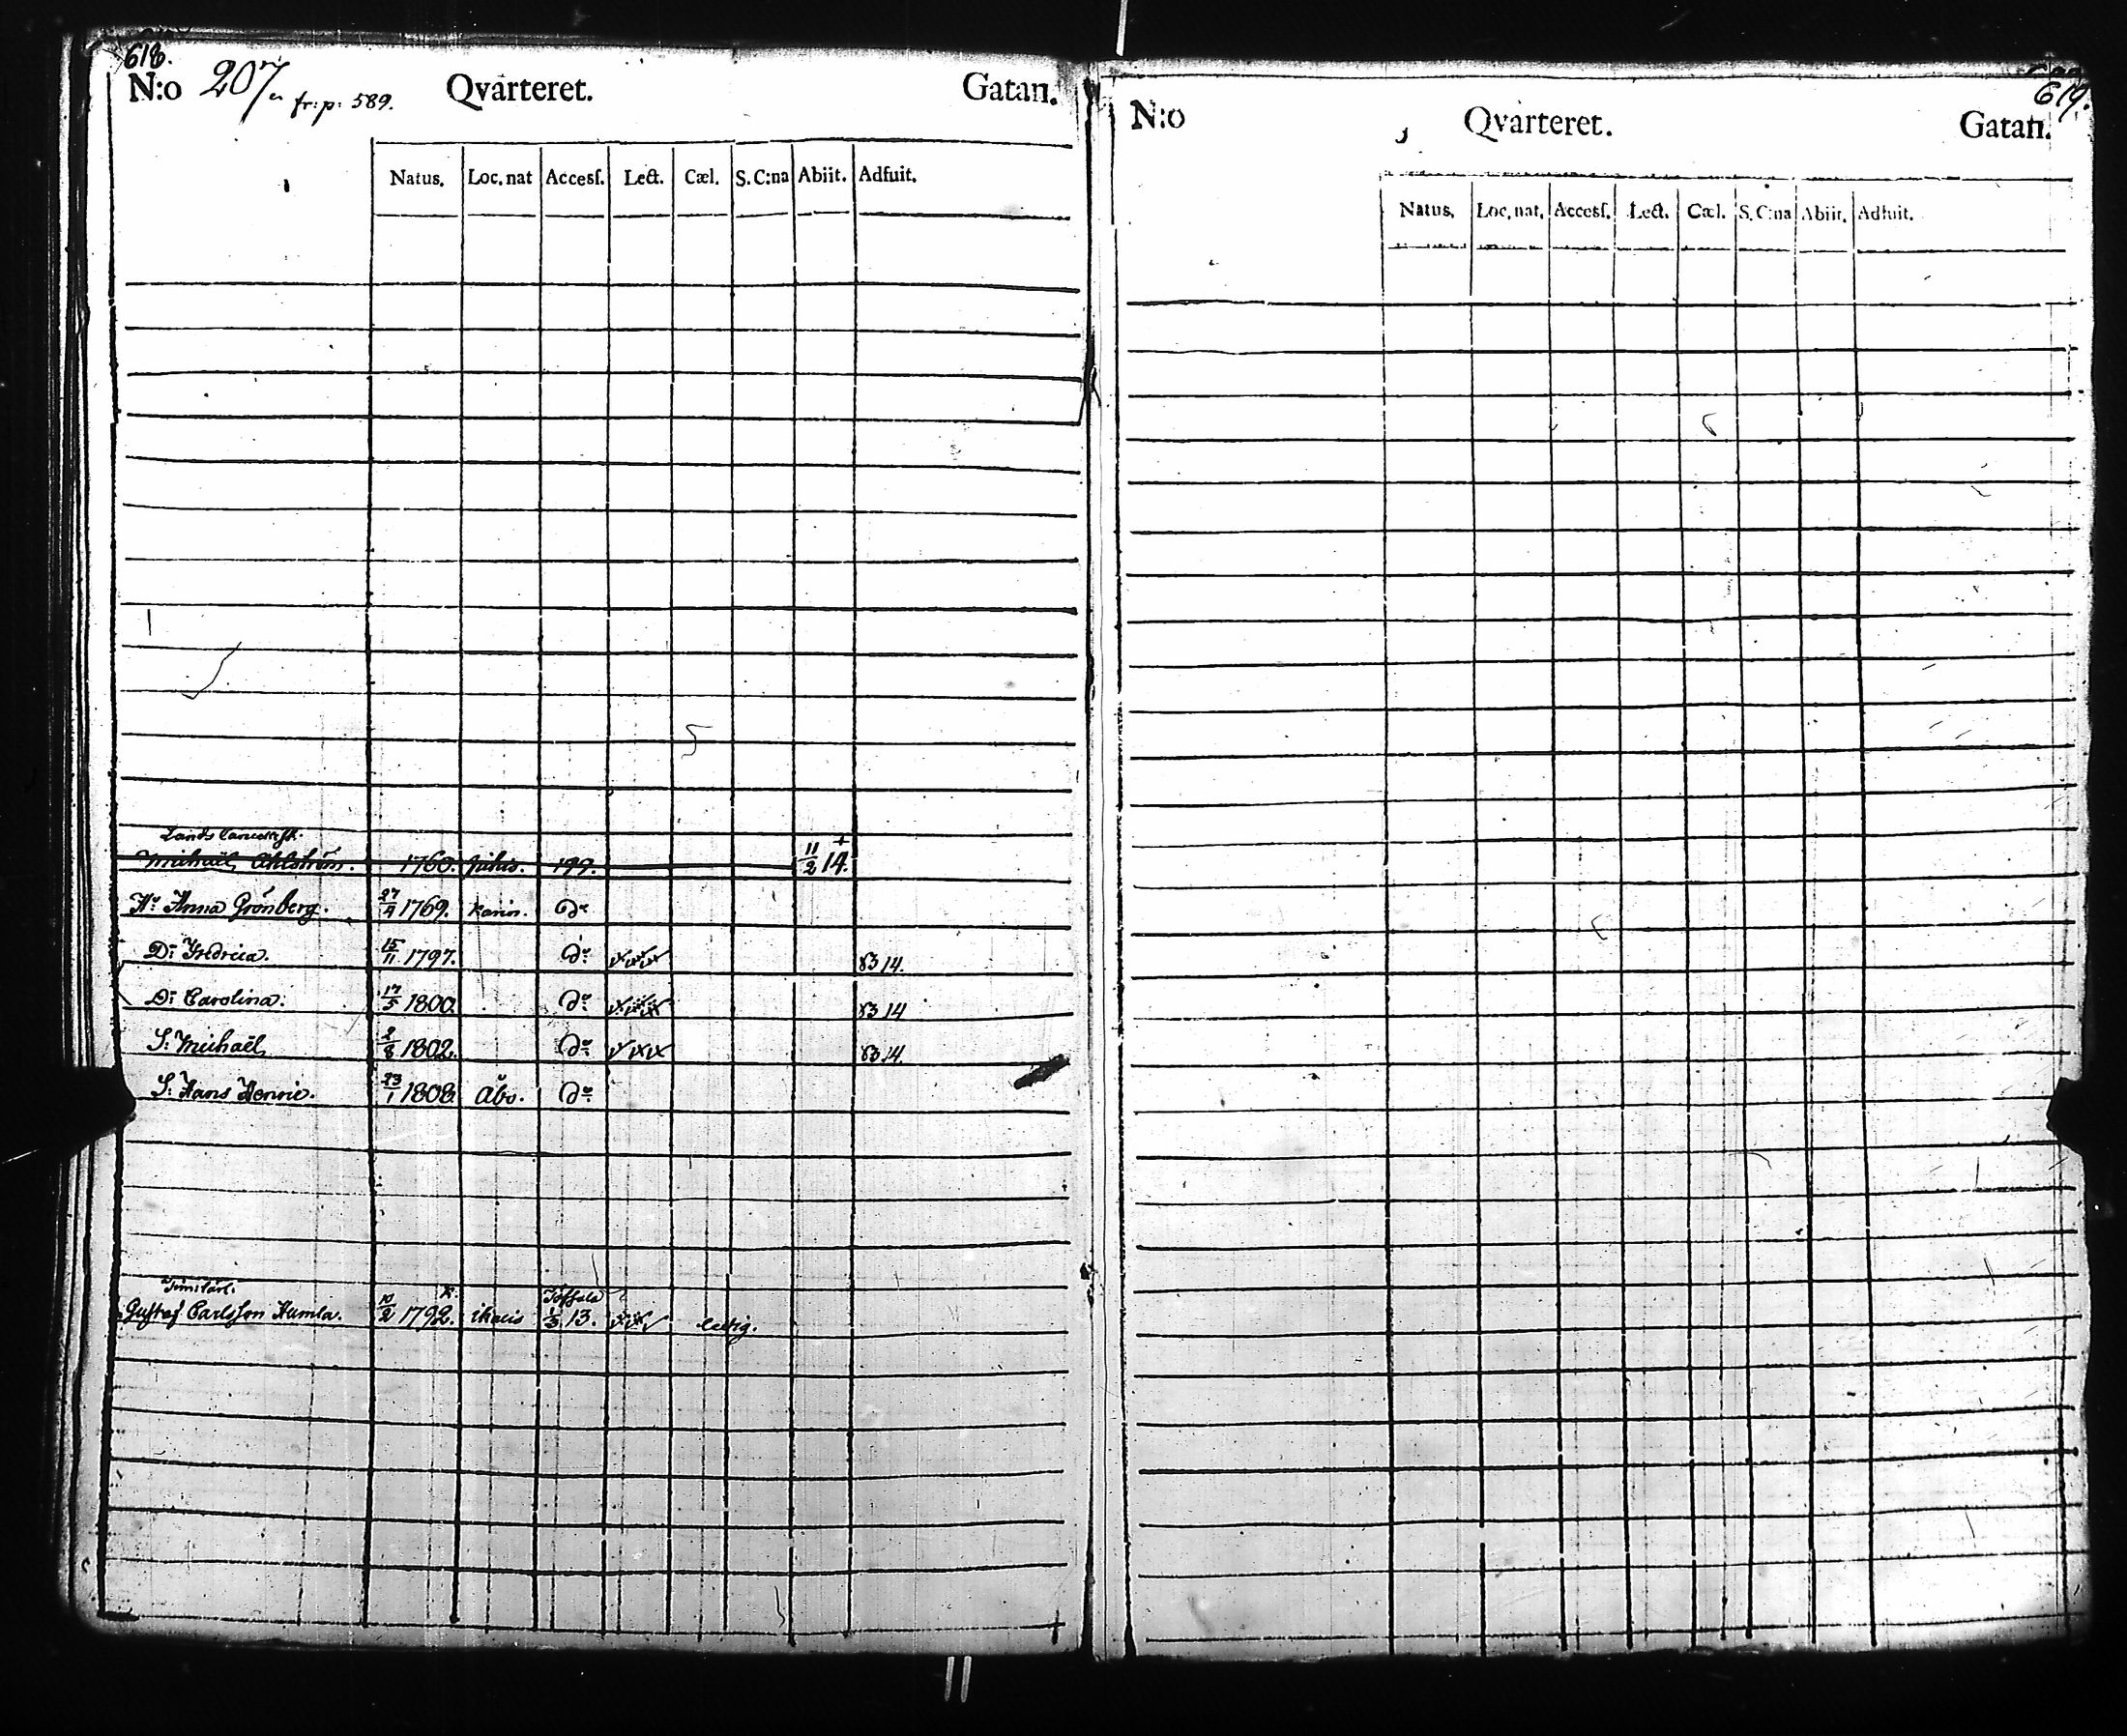 618.
N:o 207 fr: p: 589. Qvarteret. Gatan.
Natus. Loc. nat Accesſ. Lect. Cæl. S. C:na Abiit. Adfuit.
Michaël Ahlström. 1760. pikis. 197. 11/2 14. +
Hu Anna Grönberg. 27/4 1769. Karin. do
D: Fredrica. 15/11 1797. do 53 14.
D: Carolina: 17/5 1800. do 53 14
S: Michaël 2/8 1802. do 53 14.
S: Hans Henric. 23/1 1808. Åbo. do
Gustaf Carlsson Humla. 10/2 1792. ikalis 1/3 13. ledig.
619.
N:o Qvarteret. Gatan.
Natus. Loc. nat. Accesſ. Lect. Cæl. S. C:na Abiit. Adfuit.